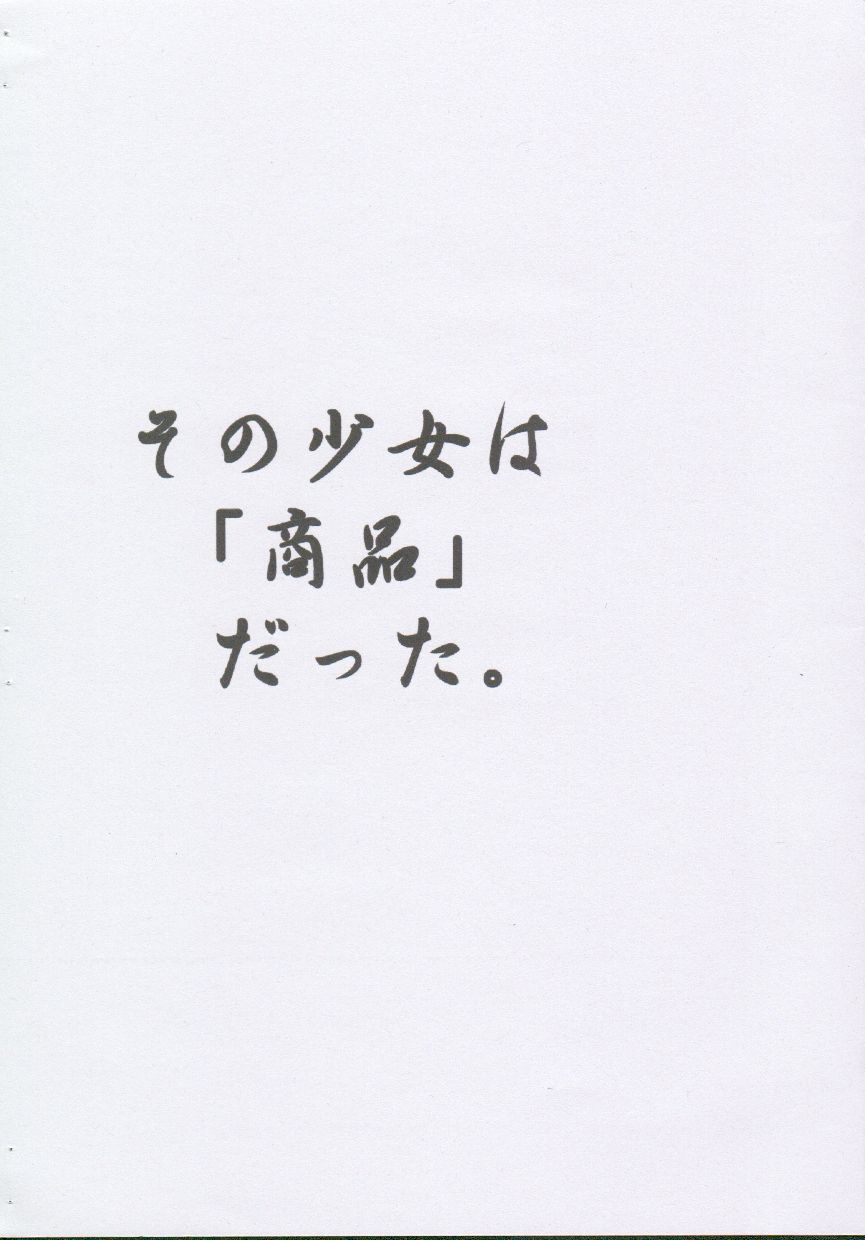 その少女は
「商品」
だった。